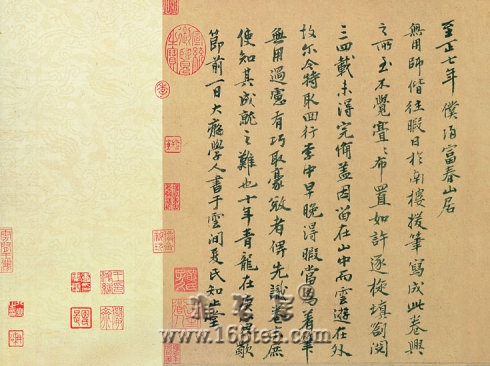 至正七年僕歸富春山居
無用師偕往暇日於南樓援筆寫成此卷興
之所至不覺亹〻布置如許逐旋填劄閱
三四載未得完備蓋因留在山中而雲遊在外
故爾今特取回行李中早晚得暇當為着筆
無用過慮有巧取豪敚者俾先識卷末庶
使知其成就之難也十年青龍在庚寅歜
節前一日大癡學人書于雲間夏氏知止堂
www.168tea.com